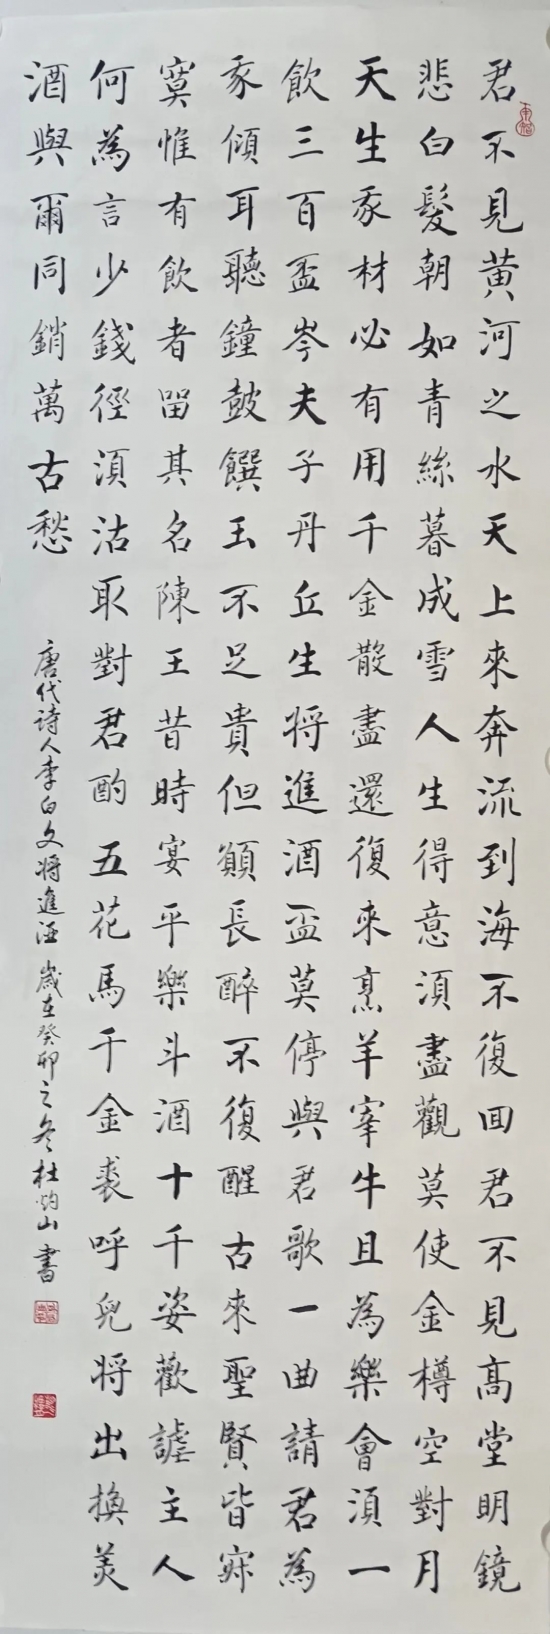 君不見黃河之水天上來奔流到海不復回君不見高堂明鏡
悲白髮朝如青絲暮成雪人生得意須盡觀莫使金樽空對月
天生我材必有用千金散盡還復來烹羊宰牛且為樂會須一
飲三百盃岑夫子丹丘生將進酒盃莫停與君歌一曲請君為
我傾耳聽鐘鼓饌玉不足貴但願長醉不復醒古來聖賢皆寂
寞惟有飲者留其名陳王昔時宴平樂斗酒十千姿歡謔主人
何為言少錢徑須沽取對君酌五花馬千金裘呼兒將出換美
酒與爾同銷萬古愁
唐代詩人李白文將進酒 歲在癸卯之冬杜灼山書